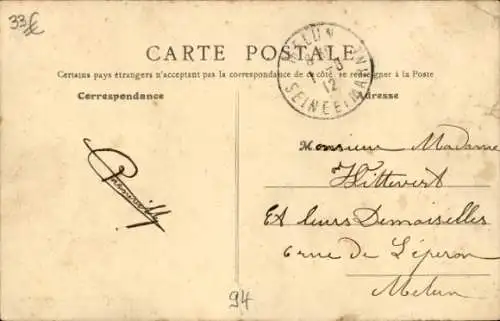 33
CARTE POSTALE
Certains pays étrangers n'acceptant pas la correspondance de ce côté, se renseigner à la Poste
Correspondance
Adresse
MELUN
8
1 - 3
12
SEINE ET MARNE
Monsieur Madame
Wittevert
Et leurs Demoiselles
6 rue de L'éperon
Melun
94